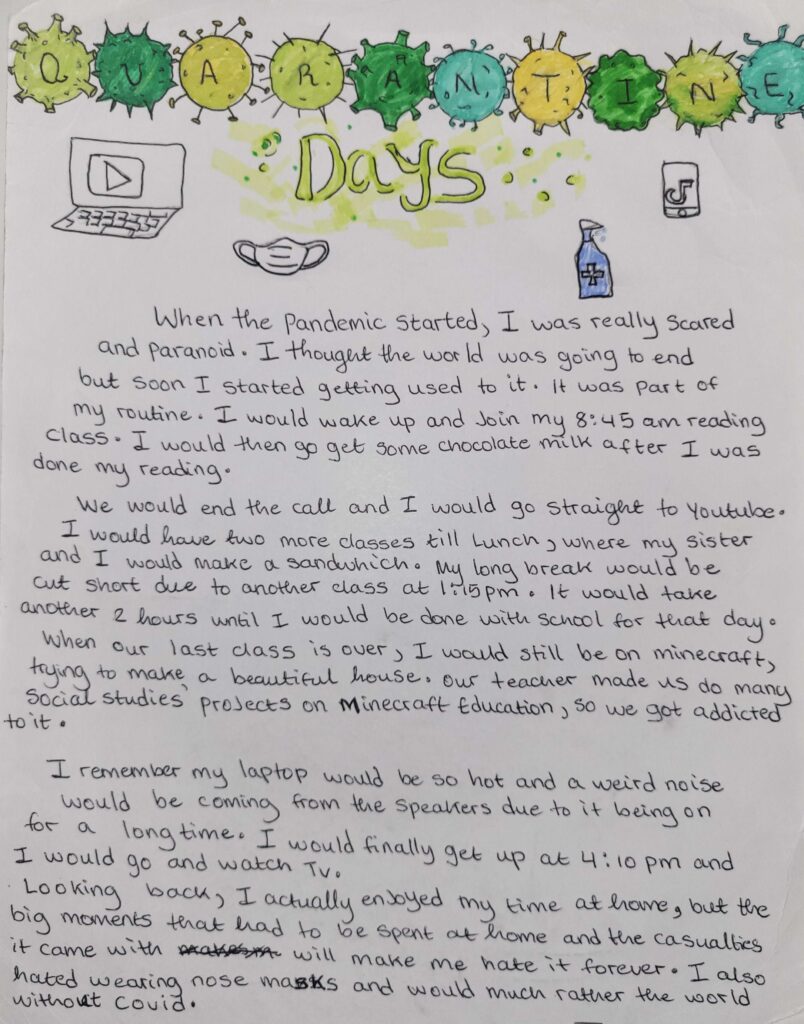 QUARANTINE
Days
When the pandemic started, I was really scared
and paranoid. I thought the world was going to end
but soon I started getting used to it. It was part of
my routine. I would wake up and Join my 8:45 am reading
class. I would then go get some chocolate milk after I was
done my reading.
We would end the call and I would go straight to Youtube.
I would have two more classes till Lunch, where my sister
and I would make a sandwhich. My long break would be
cut short due to another class at 1:15pm. It would take
another 2 hours until I would be done with school for that day.
When our last class is over, I would still be on minecraft,
trying to make a beautiful house. Our teacher made us do many
social studies' projects on Minecraft Education, so we got addicted
to it.
I remember my laptop would be so hot and a weird noise
would be coming from the speakers due to it being on
for a long time. I would finally get up at 4:10 pm and
I would go and watch Tv.
Looking back, I actually enjoyed my time at home, but the
big moments that had to be spent at home and the casualties
it came with will make me hate it forever. I also
hated wearing nose masks and would much rather the world
without Covid.